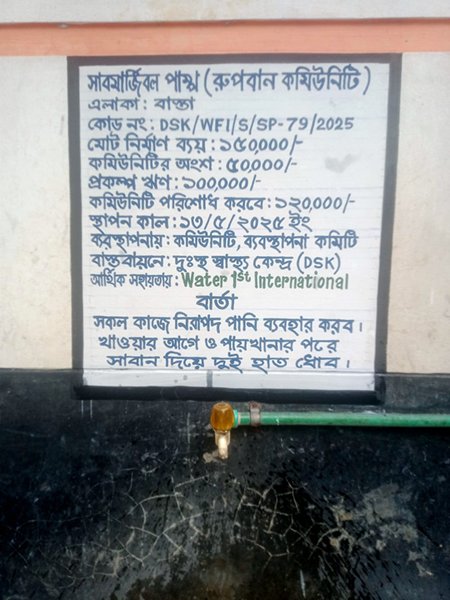 সাবমার্জিবল পাম্প (রুপবান কমিউনিটি)
এলাকা : বাস্তা
কোড নং : DSK/WFI/S/SP-79/2025
মোট নির্মাণ ব্যয় : ১৫০,০০০/-
কমিউনিটির অংশ : ৫০,০০০/-
প্রকল্প ঋণ : ১০০,০০০/-
কমিউনিটি পরিশোধ করবে : ১২০,০০০/-
স্থাপন কাল : ১৩/৫/২০২৫ ইং
ব্যবস্থাপনায় : কমিউনিটি, ব্যবস্থাপনা কমিটি
বাস্তবায়নে : দুঃস্থ স্বাস্থ্য কেন্দ্র (DSK)
আর্থিক সহায়তায় : Water 1st International
বার্তা
সকল কাজে নিরাপদ পানি ব্যবহার করব ।
খাওয়ার আগে ও পায়খানার পরে
সাবান দিয়ে দুই হাত ধোব ।